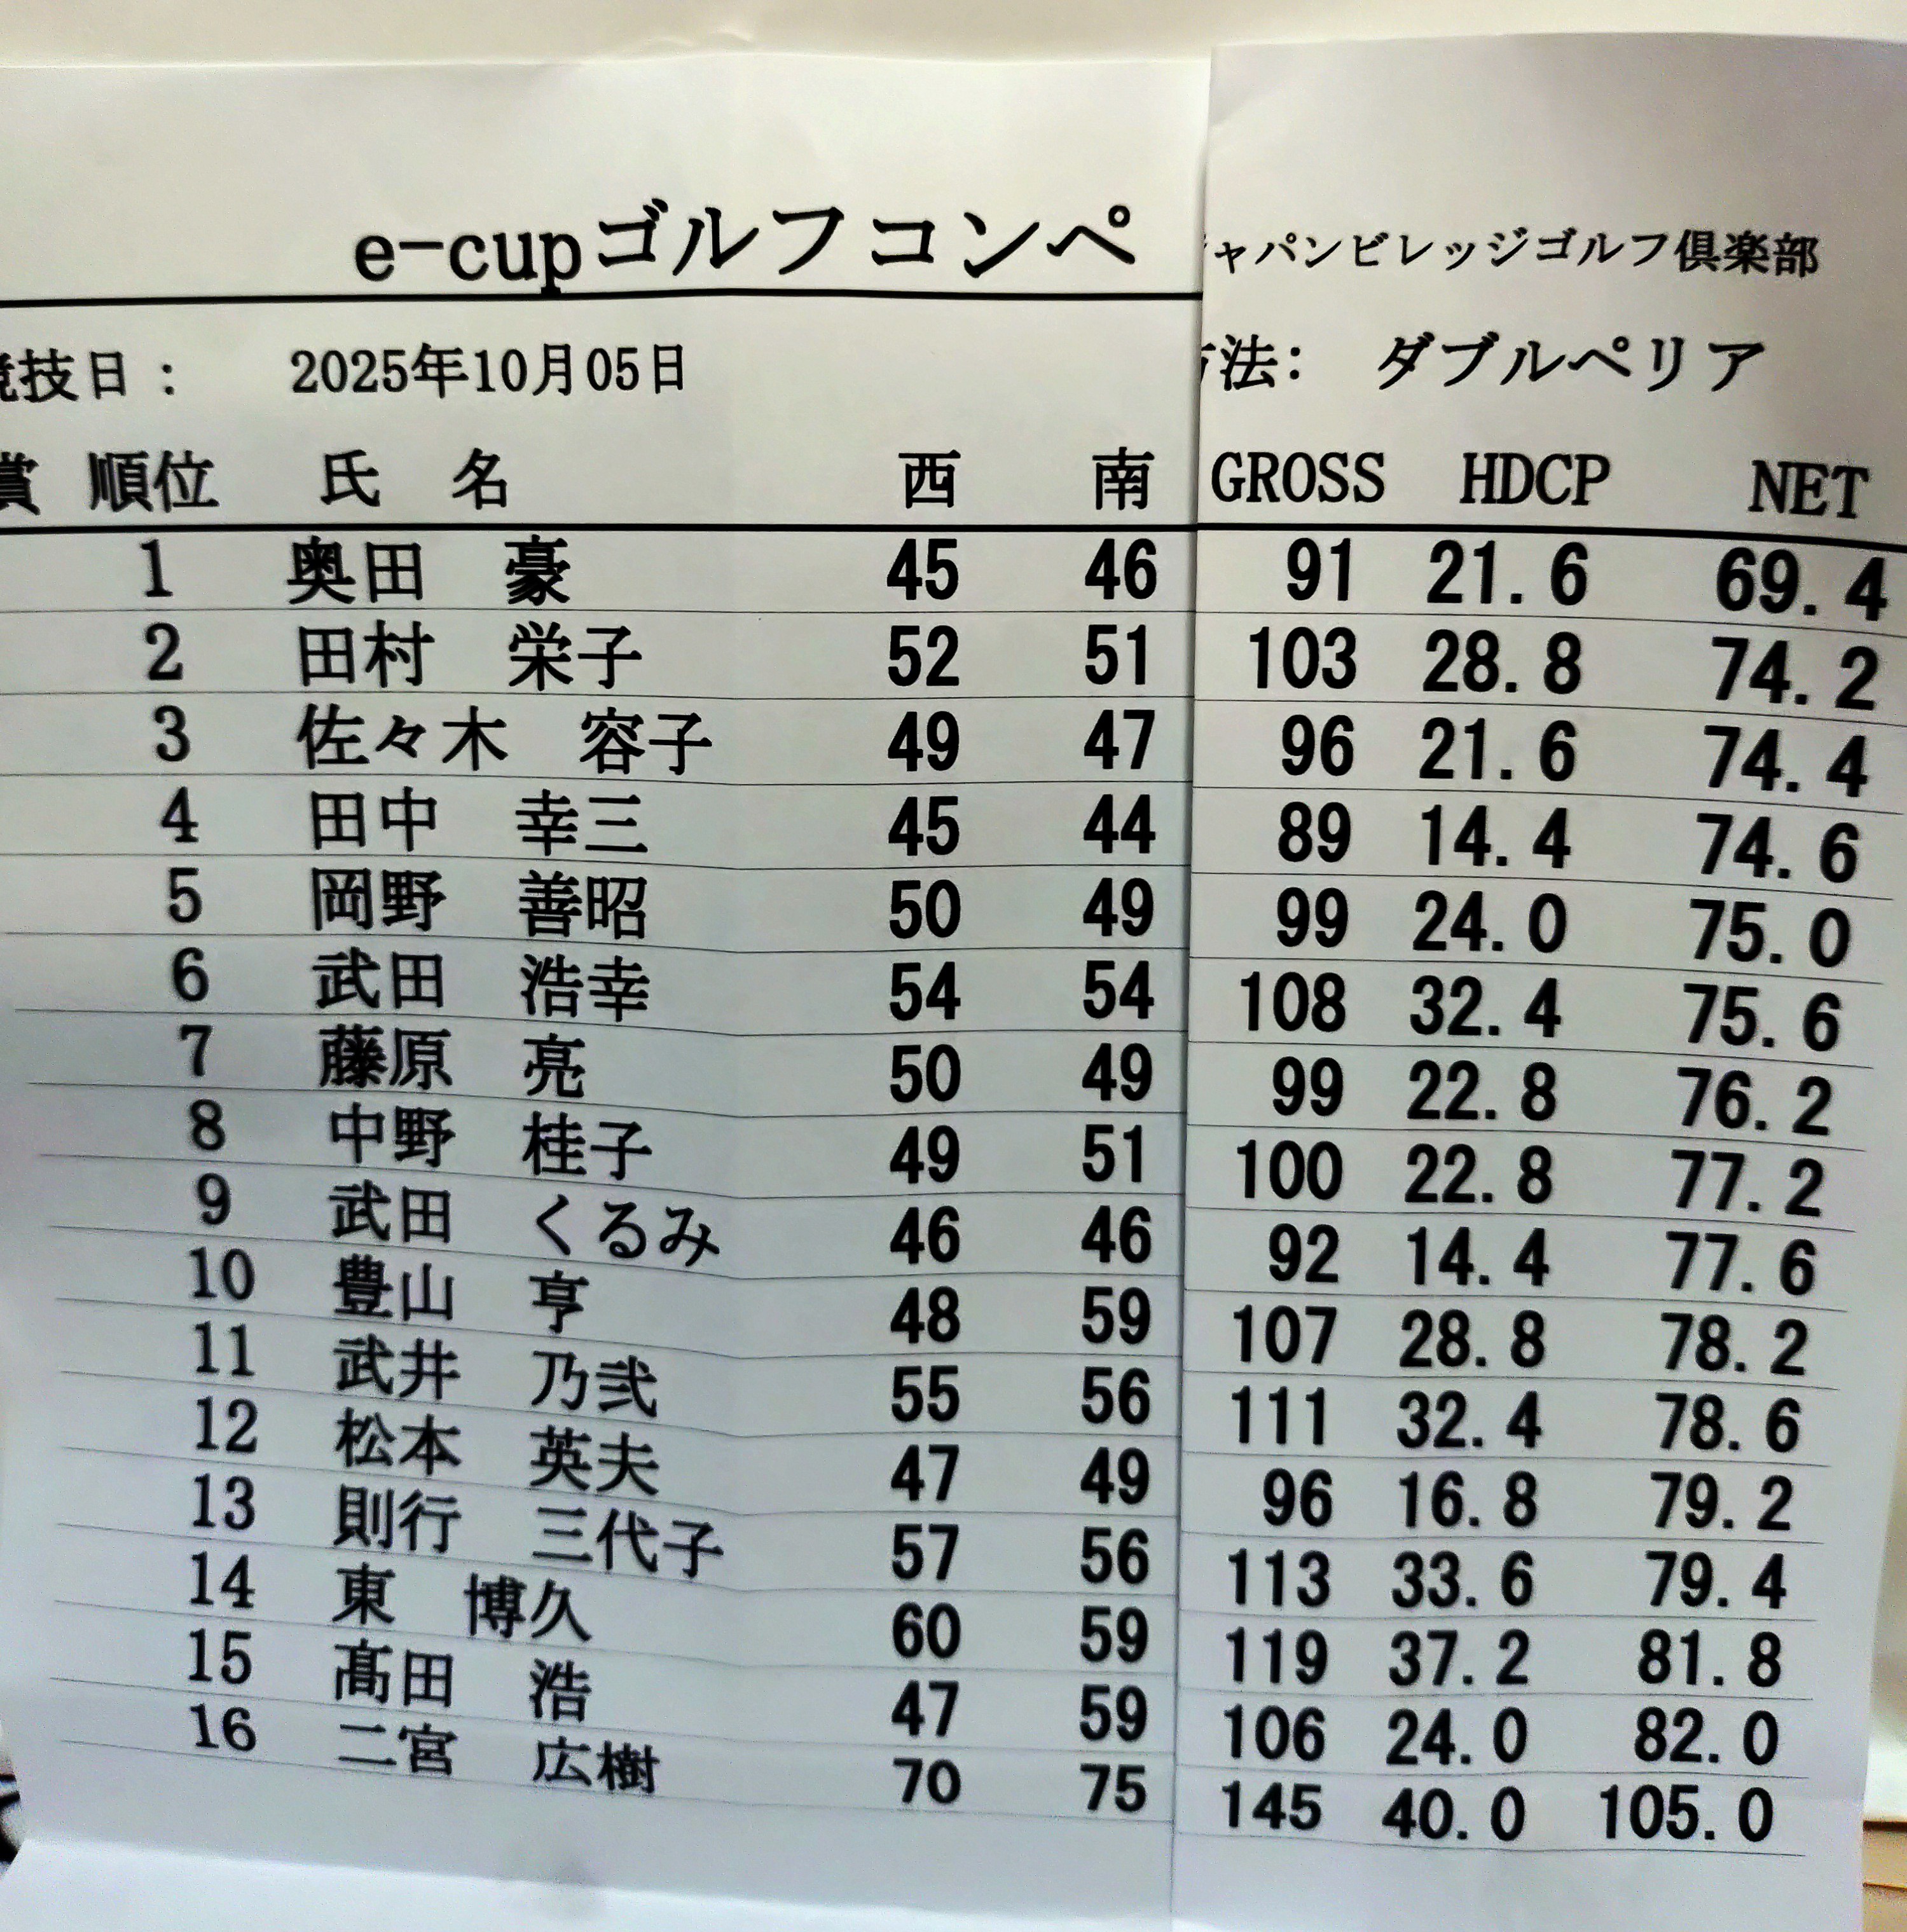 e-cupゴルフコンペ ャパンビレッジゴルフ倶楽部
競技日： 2025年10月05日 方法: ダブルペリア
賞 順位 氏 名 西 南 GROSS HDCP NET
1 奥田 豪 45 46 91 21.6 69.4
2 田村 栄子 52 51 103 28.8 74.2
3 佐々木 容子 49 47 96 21.6 74.4
4 田中 幸三 45 44 89 14.4 74.6
5 岡野 善昭 50 49 99 24.0 75.0
6 武田 浩幸 54 54 108 32.4 75.6
7 藤原 亮 50 49 99 22.8 76.2
8 中野 桂子 49 51 100 22.8 77.2
9 武田 くるみ 46 46 92 14.4 77.6
10 豊山 亨 48 59 107 28.8 78.2
11 武井 乃弐 55 56 111 32.4 78.6
12 松本 英夫 47 49 96 16.8 79.2
13 則行 三代子 57 56 113 33.6 79.4
14 東 博久 60 59 119 37.2 81.8
15 髙田 浩 47 59 106 24.0 82.0
16 二宮 広樹 70 75 145 40.0 105.0